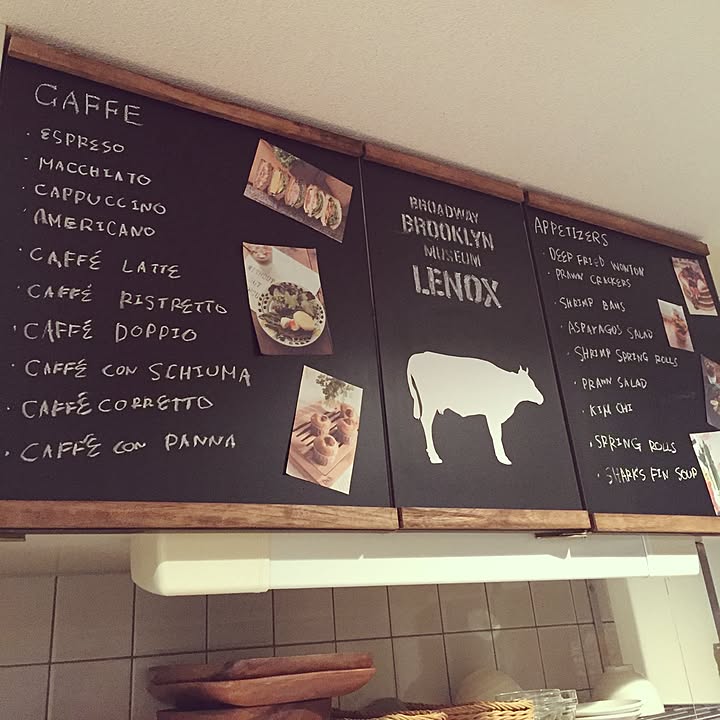 CAFFE
· ESPRESO
· MACCHIATO
· CAPPUCCINO
· AMERICANO
· CAFFÉ LATTE
· CAFFÉ RISTRETTO
· CAFFÉ DOPPIO
· CAFFÉ CON SCHIUMA
· CAFFÉ CORRETTO
· CAFFÉ CON PANNA
BROADWAY
BROOKLYN
MUSEUM
LENOX
APPETIZERS
· DEEP FRIED WONTON
· PRAWN CRACKERS
· SHRIMP BANS
· ASPARAGOS SALAD
· SHRIMP SPRING ROLLS
· PRAWN SALAD
· KIM CHI
· SPRING ROLLS
· SHARKS FIN SOUP